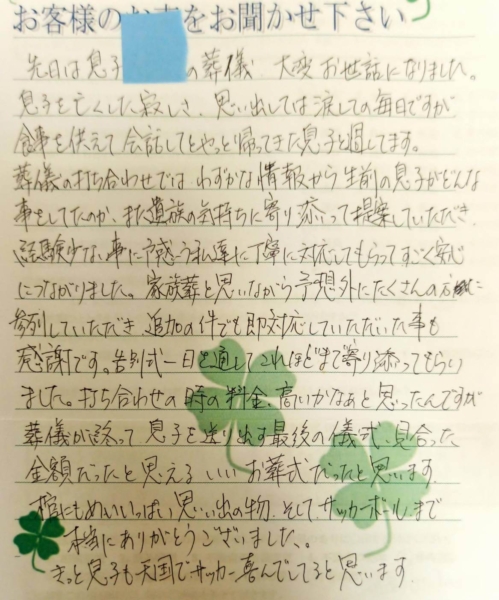 お客様のお声をお聞かせ下さい
先日は息子 の葬儀、大変お世話になりました。
息子を亡くした寂しさ、思い出しては涙しての毎日ですが
食事を供えて会話してとやっと帰ってきた息子と過してます。
葬儀の打ち合わせでは、わずかな情報から生前の息子がどんな
事をしてたのか、また遺族の気持ちに寄り添って提案していただき、
経験少ない事に戸惑う私達に丁寧に対応してもらってすごく安心
につながりました。家族葬と思いながら予想外にたくさんの方々に
参列していただき、追加の件でも即対応していただいた事も
感謝です。告別式一日を通してこれほどまで寄り添ってもらい
ました。打ち合わせの時の料金、高いかなぁと思ったんですが
葬儀が終って息子を送り出す最後の儀式、見合った
金額だったと思える いいお葬式だったと思います。
棺にもめいいっぱい思い出の物、そしてサッカーボールまで
本当にありがとうございました。
きっと息子も天国でサッカー喜んでしてると思います。